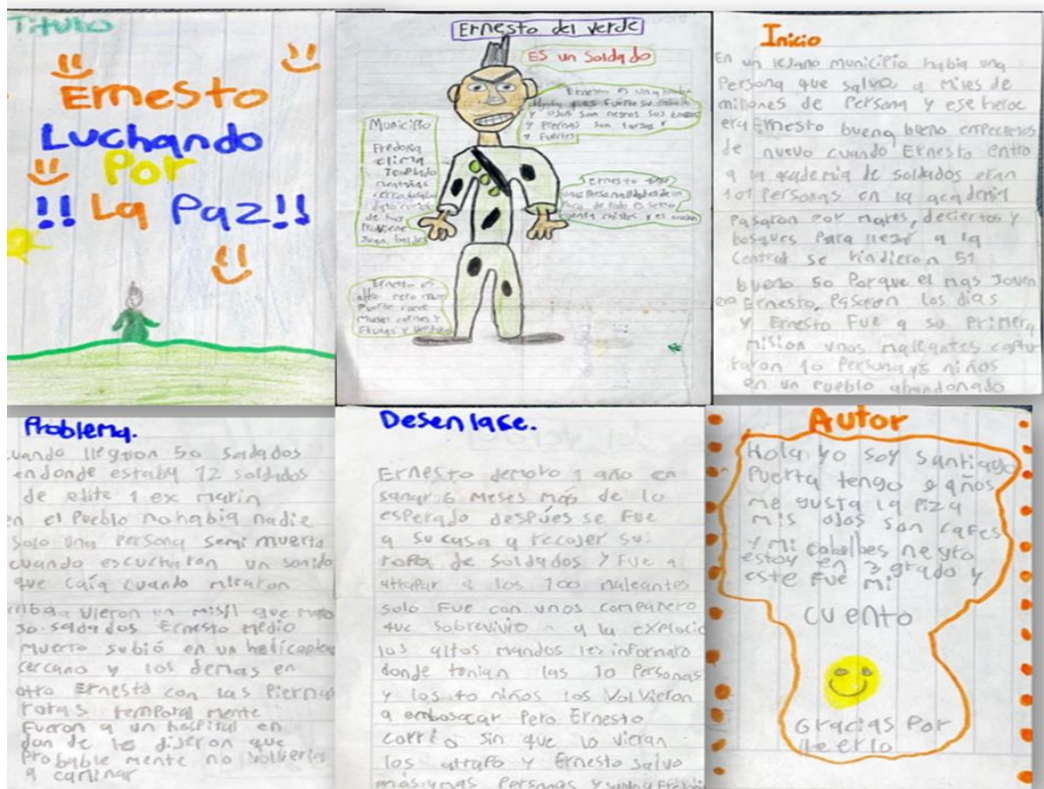 Titulo
Ernesto
Luchando
Por
!! La Paz!!
Ernesto del verde
ES un Soldado
Ernesto es un
fuerte su cabello
y ojos son negros sus brazos
y piernas son largos y
y Fuertes
Municipio
Fredonia
clima
Templado
montañas
de hoy
Proviene
Ernesto
cuenta chistes y es
Ernesto es
alto pero muy
Fuerte
Frutas y
Inicio
En un lejano Municipio habia una
Persona que salvo a Miles de
millones de Persona y ese heroe
era Ernesto bueno bueno empecemos
de nuevo cuando Ernesto entro
a la academia de soldados eran
101 Personas en la academia
Pasaron por mares, deciertos y
bosques Para llegar a la
Central se rindieron 51
bueno 50 Porque el mas Joven
era Ernesto, Pasaron los días
y Ernesto Fue a su Primera
Mision unos maleantes captu
raron 10 Personas y niños
en un Pueblo abandonado
Problema.
cuando llegaron 50 soldados
en donde estaba 12 soldados
de elite 1 ex marin
en el Pueblo no habia nadie
Solo una Persona semi muerta
cuando escucharon un sonido
que caía cuando miraron
arriba vieron un misil que mato
50 soldados Ernesto medio
Muerto subió en un helicoptero
cercano y los demas en
otro Ernesto con las Piernas
rotas temporal mente
Fueron a un hospital en
don de le dijeron que
Probable mente no volberia
a caminar
Desenlase.
Ernesto demoro 1 año en
sanar 6 meses mas de lo
esperado despúes se Fue
a su casa a recojer su
ropa de soldados y Fue a
attapar a los 100 maleantes
solo Fue con unos compañero
que sobrevivio a la explocio
los altos mandos les informaro
donde tenian las 10 Personas
y los 40 niños los volvieron
a emboscar Pero Ernesto
corrio sin que lo vieran
los atrapo y Ernesto salvo
más unas Personas y
Autor
Hola yo soy Santiago
Puerta tengo 9 años
me gusta la Piza
mis ojos son cafes
y mi cabello es negro
estoy en 3 grado y
este Fue mi
cuento
Gracias Por
leerlo